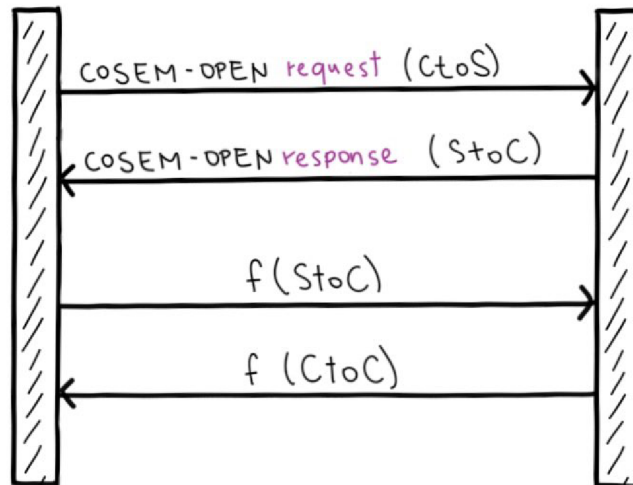 COSEM-OPEN request (CtoS)
COSEM-OPEN response (StoC)
f (StoC)
f (CtoC)